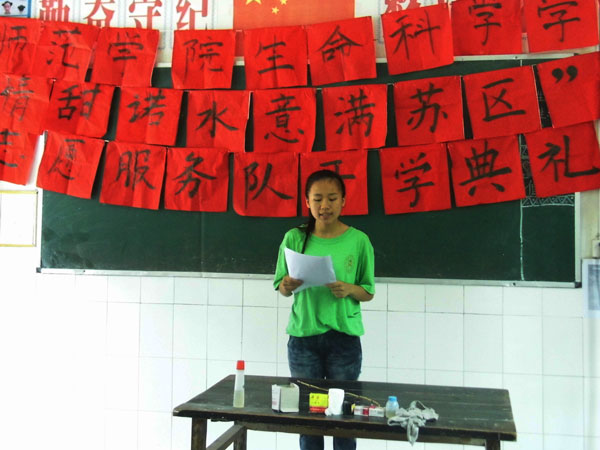 勤奋守纪
师范学院生命科学学
情甜诺水意满苏区”
志愿服务队开学典礼